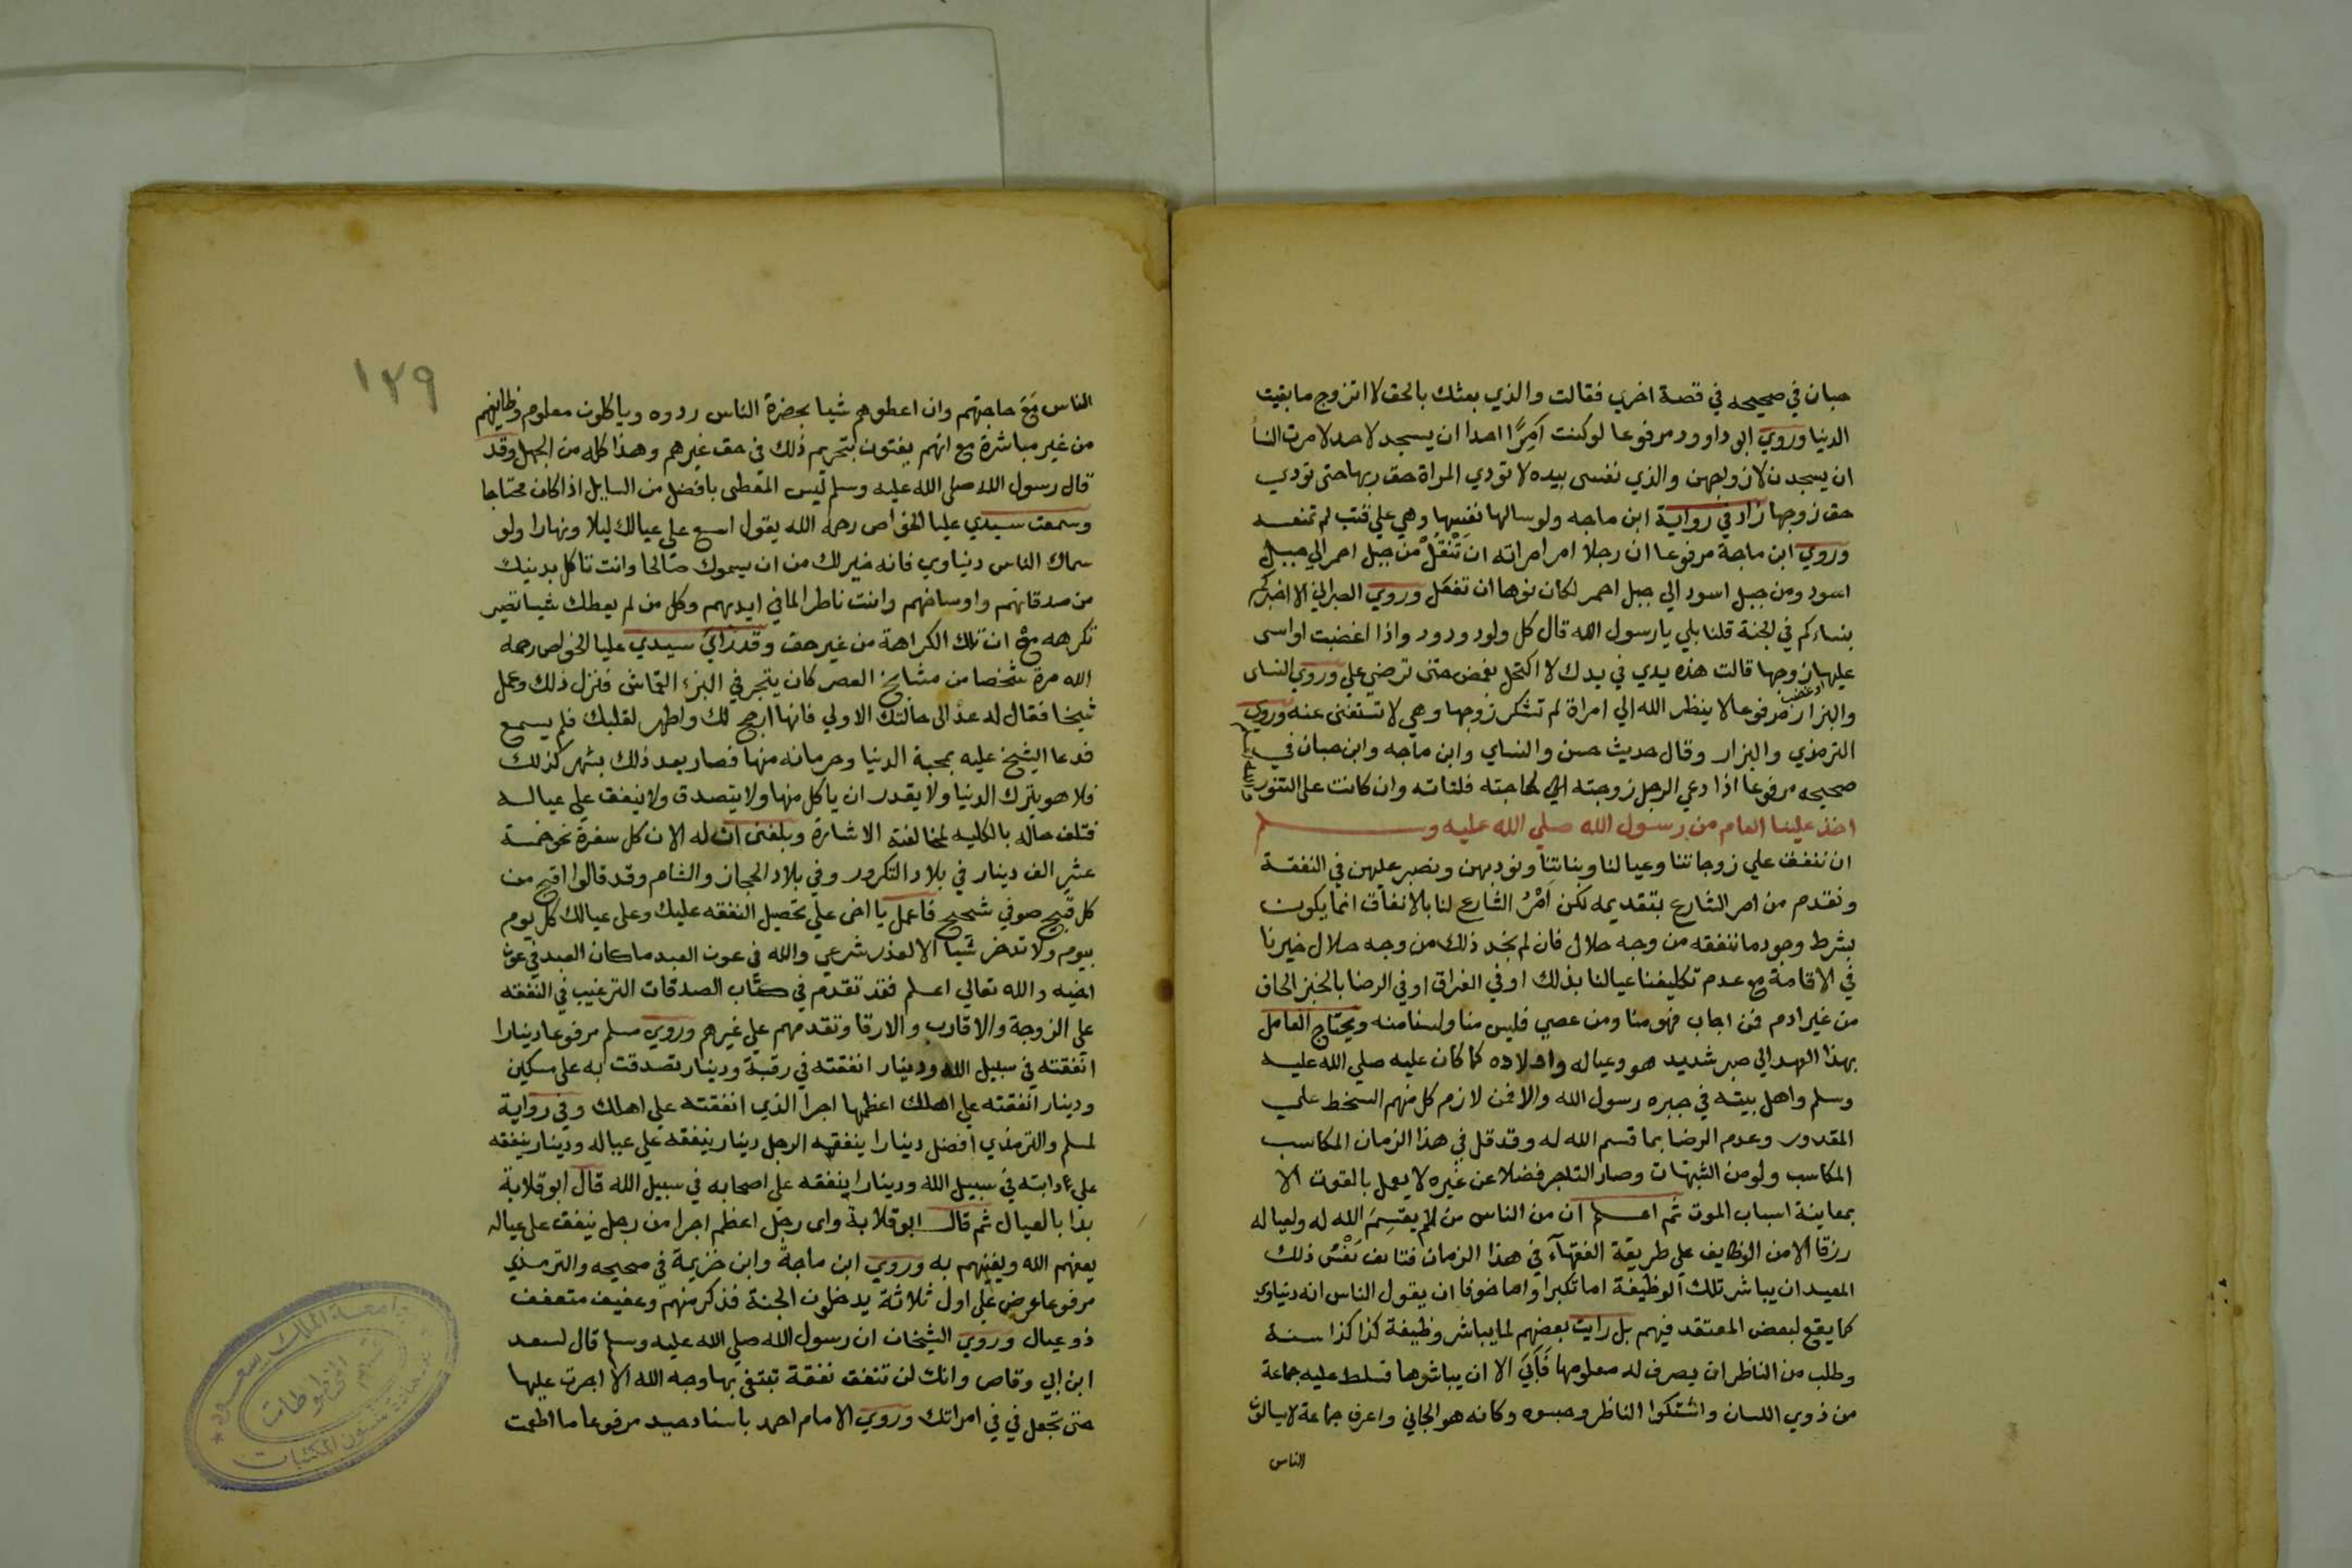 حبان في صحيحه في قصة اخري فقالت والذي بعثك بالحق لا اتزوج ما بقيت
الدنيا وروي ابو داوود مرفوعا لو كنت آمِرًا احدا ان يسجد لاحد لامرت النسا
ان يسجدن لازواجهن والذي نفسى بيده لا تودي المراة حق ربها حتى تودي
حق زوجها زاد في رواية ابن ماجه ولو سالها نفسها وهي علي قتب لم تمنعه
وروي ابن ماجة مرفوعا ان رجلا امر امراته ان تَنْقُلْ من جبل احمر الي جبل
اسود ومن جبل اسود الي جبل احمر لكان نولها ان تفعل وروي الطبراني الا اخبركم
بنساءكم في الجنة قلنا بلي يا رسول الله قال كل ولود ودود واذا اغضبت او اسى
عليها زوجها قالت هذه يدي في يدك لا اكتحل بغمض حتى ترضي علي وروي النساى
او غضب
والبزار مرفوعا لا ينظر الله الي امراة لم تشكر زوجها وهي لا تستغنى عنه وروي
الترمذي والبزار وقال حديث حسن والنساي وابن ماجه وابن حبان في
صحيحه مرفوعا اذا دعي الرجل زوجته الي حاجته فلتاته وان كانت على التنور
اخذ علينا العام من رسول الله صلي الله عليه وسلم
ان ننفق علي زوجاتنا وعيالنا وبناتنا ونودبهن ونصبر عليهن في النفقة
ونقدم من امر الشارع بتقديمه لكن اَمْرُ الشارع لنا بالانفاق انما يكون
بشرط وجود ما ننفقه من وجه حلال فان لم نجد ذلك من وجه حلال خيرنا
في الاقامة مع عدم تكليفنا عيالنا بذلك او في الفراق او في الرضا بالخبز الحاف
من غير ادم فمن اجاب فهو منا ومن عصي فليس منا ولسنا منه ويحتاج العامل
بهذا العهد الي صبر شديد هو وعياله واولاده كما كان عليه صلي الله عليه
وسلم واهل بيته في صبره رسول الله والا فمن لازم كل منهم السخط علي
المقدور وعدم الرضا بما قسم الله له وقد قل في هذا الزمان المكاسب
المكاسب ولو من الشبهات وصار التاجر فضلا عن غيره لا يعمل بالقوت الا
بمعاينة اسباب الموت ثم اعلم ان من الناس من لم يقسِمَ الله له ولعياله
رزقا الا من الوظايف علي طريقة الفقهآء في هذا الزمان فتانف نَفْسُ ذلك
العبد ان يباشر تلك الوظيفة اما تكبرا واما خوفا ان يقول الناس انه دنياوي
كما يقع لبعض المعتقد فيهم بل رايت بعضهم لما يباشر وظيفة كذا كذا سنة
وطلب من الناظر ان يصرف له معلومها فَاَبَيَ الا ان يباشرها فسلط عليه جماعة
من ذوي اللسان واشتكوا الناظر وحبسوه وكانه هو الجاني واعرف جماعة لا يسالون
الناس
١٣٩
الناس مَعَ حاجتهم وان اعطوهم شيا بحضرة الناس ردوه وياكلون معلوم وظايفهم
من غير مباشرة مع انهم يفتون بتحريم ذلك في حق غيرهم وهذا كله من الجهل وقد
قال رسول الله صلي الله عليه وسلم ليس المعطى بافضل من السايل اذا كان محتاجا
وسمعت سيدي عليا الخواص رحمه الله يقول اسع علي عيالك ليلا ونهارا ولو
سماك الناس دنياوي فانه خير لك من ان يسموك صالحا وانت تاكل بدينك
من صدقاتهم واوساخهم وانت ناظر الما في ايديهم وكل من لم يعطك شيا تصير
تكرهه مع ان تلك الكراهة من غير حق وقد راي سيدي عليا الخواص رحمه
الله مرة شخصا من مشايخ العصر كان يتجر في البزء القماش فنزل ذلك وعمل
شيخا فقال له عد الى حالتك الاولي فانها ارجح لك واطهر لقلبك فلم يسمع
فدعا الشيخ عليه بمحبة الدنيا وحرمانه منها فصار بعد ذلك بشهر كذلك
فلا هو يترك الدنيا ولا يقدر ان ياكل منها ولا يتصدق ولا ينفق علي عياله
فتلف حاله بالكليه لمخالفة الاشارة وبلغنى ان له الان كل سفرة نحو خمسة
عشر الف دينار في بلاد التكرور وفي بلاد الحجاز والشام وقد قالوا اقبح من
كل قبيح صوفي شحيح فاعمل يا اخى علي تحصيل النفقه عليك وعلى عيالك كل يوم
بيوم ولا تدخر شيا الا لعذر شرعي والله في عون العبد ما كان العبد في عون
اخيه والله تعالي اعلم فقد تقدم في كتاب الصدقات الترغيب في النفقه
علي الزوجة والاقارب والارقا وتقدمهم علي غيرهم وروي مسلم مرفوعا دينارا
انفقته في سبيل الله ودينار انفقته في رقبة ودينار تصدقت به على مسكين
ودينار انفقته علي اهلك اعظمها اجرا الذي انفقته علي اهلك وفي رواية
لمسلم والترمذي افضل دينارا ينفقه الرجل دينار ينفقه علي عياله ودينار ينفقه
علي دابته في سبيل الله ودينارا ينفقه علي اصحابه في سبيل الله قال ابو قلابة
بدا بالعيال ثم قال ابو قلابة واى رجل اعظم اجرا من رجل ينفق على عياله
يعفهم الله ويغنيهم به وروي ابن ماجة وابن خزيمة في صحيحه والترمذي
مرفوعا عرض علي اول ثلاثة يدخلون الجنة فذكر منهم وعفيف متعفف
ذو عيال وروي الشيخان ان رسول الله صلي الله عليه وسلم قال لسعد
ابن ابي وقاص وانك لن تنفق نفقة تبتغى بها وجه الله الا اجرت عليها
حتى تجعل في في امراتك وروي الامام احمد باسناد جيد مرفوعا ما اطعمت
جامعة الملك سعود
قسم المخطوطات
عمادة شئون المكتبات